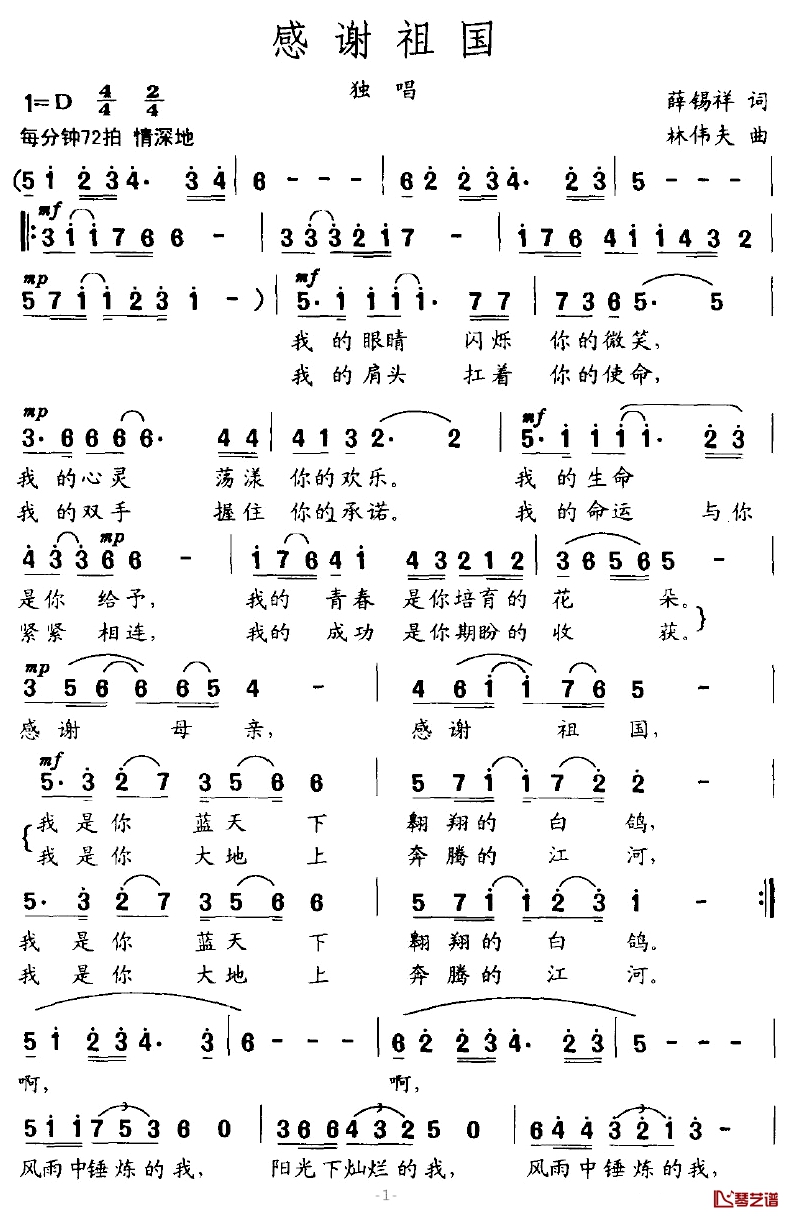 感谢祖国
独唱
1=D 4/4 2/4
薛锡祥 词
每分钟72拍 情深地
林伟夫 曲
(5 1 2 3 4· 3 4 | 6 - - - | 6 2 2 3 4· 2 3 | 5 - - - |
mf
‖: 3 1 1 7 6 6 - | 3 3 3 2 1 7 - | 1 7 6 4 1 1 4 3 2 |
mp mf
5 7 1 1 2 3 1 - ) | 5· 1 1 1 1· 7 7 | 7 3 6 5· 5 |
我的眼睛 闪烁 你的微笑,
我的肩头 扛着 你的使命,
mp mf
3· 6 6 6 6· 4 4 | 4 1 3 2· 2 | 5· 1 1 1 1· 2 3 |
我的心灵 荡漾 你的欢乐。 我的生命
我的双手 握住 你的承诺。 我的命运 与你
mp
4 3 3 6 6 - | 1 7 6 4 1 4 3 2 1 2 | 3 6 5 6 5 - |
是你 给予, 我的 青春 是你培育的 花 朵。
紧紧 相连, 我的 成功 是你期盼的 收 获。
mp
3 5 6 6 6 5 4 - | 4 6 1 1 7 6 5 - |
感谢 母 亲, 感谢 祖 国,
mf
5· 3 2 7 3 5 6 6 | 5 7 1 1 7 2 2 - |
我是你 蓝天 下 翱翔的 白 鸽,
我是你 大地 上 奔腾的 江 河,
5· 3 2 7 3 5 6 6 | 5 7 1 1 2 3 1 - :‖
我是你 蓝天 下 翱翔的 白 鸽。
我是你 大地 上 奔腾的 江 河。
5 1 2 3 4· 3 | 6 - - - | 6 2 2 3 4· 2 3 | 5 - - - |
啊, 啊,
3 3 3
5 1 1 7 5 3 6 0 | 3 6 6 4 3 2 5 0 | 6 4 4 3 2 1 3 0 |
风雨中锤炼的我, 阳光下灿烂的我, 风雨中锤炼的我,
-1-
琴艺谱